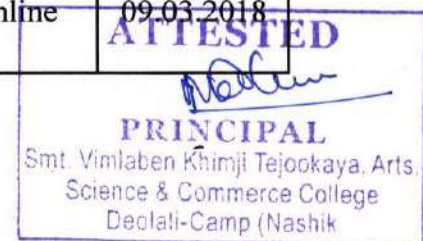 nline 09.03.2018
ATTESTED
PRINCIPAL
Smt. Vimlaben Khimji Tejookaya, Arts,
Science & Commerce College
Deolali-Camp (Nashik